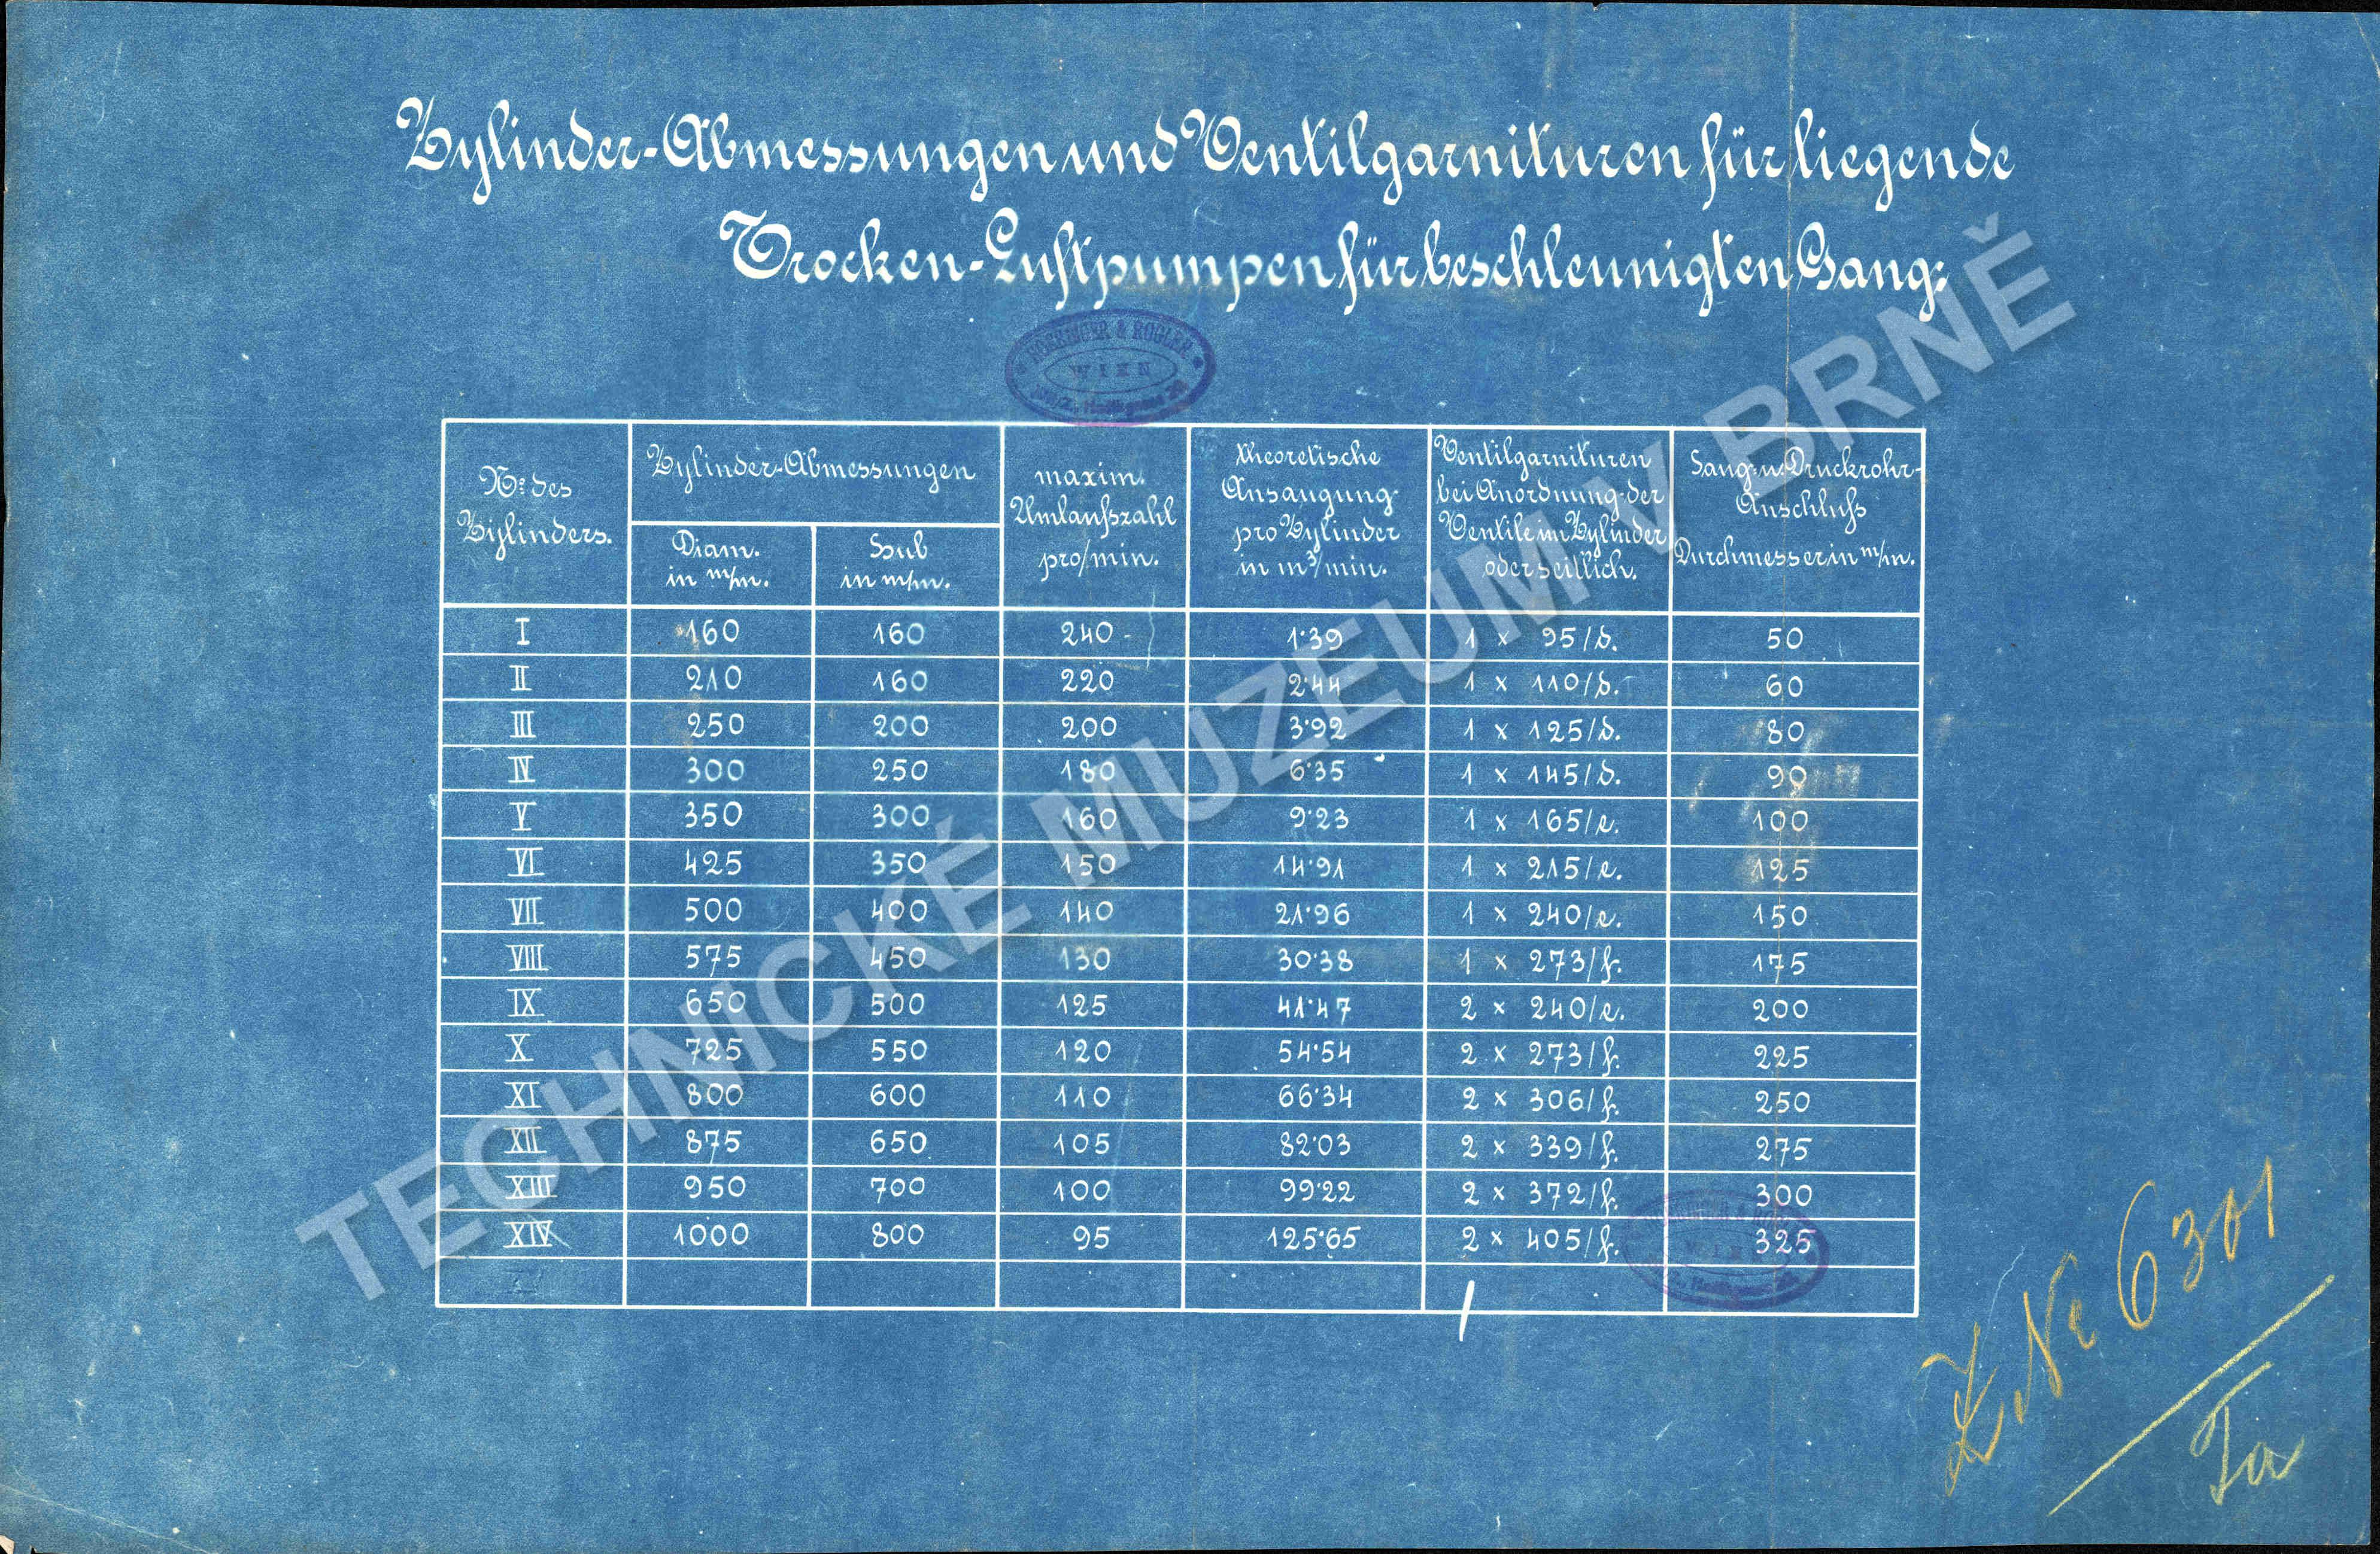 Zylinder-Abmessungen und Ventilgarnituren für liegende
Trocken-Luftpumpen für beschleunigten Gang:
HOERBIGER & ROGLER
WIEN
No des Zylinders.
Zylinder-Abmessungen
Diam. in m/m.
Hub in m/m.
maxim. Umlaufszahl pro/min.
theoretische Ansaugung pro Zylinder in m³/min.
Ventilgarnituren bei Anordnung der Ventile im Zylinder oder seitlich.
Saug- u. Druckrohr-Anschluss Durchmesser in m/m.
I 160 160 240 1·39 1 x 95/d. 50
II 210 160 220 2·44 1 x 110/d. 60
III 250 200 200 3·92 1 x 125/d. 80
IV 300 250 180 6·35 1 x 145/d. 90
V 350 300 160 9·23 1 x 165/e. 100
VI 425 350 150 14·91 1 x 215/e. 125
VII 500 400 140 21·96 1 x 240/e. 150
VIII 575 450 130 30·38 1 x 273/f. 175
IX 650 500 125 41·47 2 x 240/e. 200
X 725 550 120 54·54 2 x 273/f. 225
XI 800 600 110 66·34 2 x 306/f. 250
XII 875 650 105 82·03 2 x 339/f. 275
XIII 950 700 100 99·22 2 x 372/f. 300
XIV 1000 800 95 125·65 2 x 405/f. 325
WIEN
Z. No 6301
Ia
TECHNICKÉ MUZEUM V BRNĚ